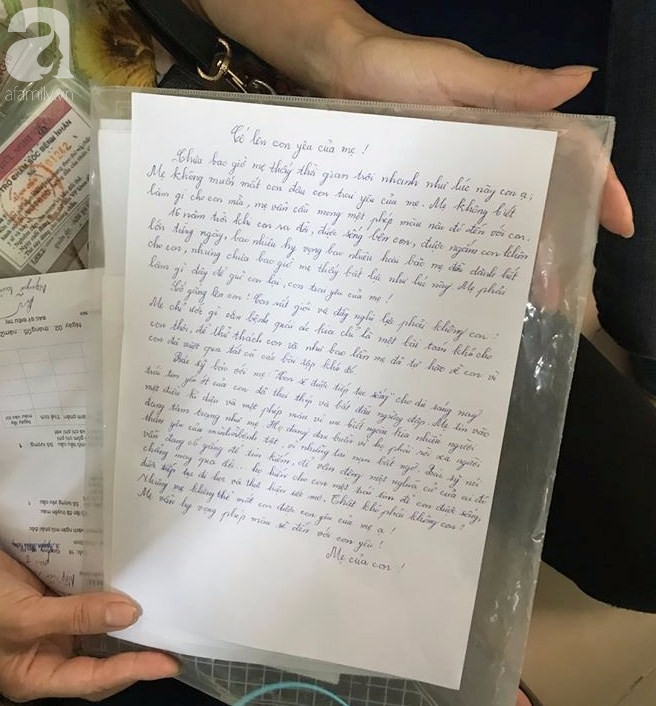 a
afamily.vn
Cố lên con yêu của mẹ !
Chưa bao giờ mẹ thấy thời gian trôi nhanh như lúc này con ạ;
Mẹ không muốn mất con đâu con trai yêu của mẹ. Mẹ không biết
làm gì cho con nữa, mẹ vẫn cầu mong một phép màu nào đó đến với con.
16 năm trời khi con ra đời, được sống bên con, được ngắm con khôn
lớn từng ngày, bao nhiêu hy vọng bao nhiêu hoài bão mẹ đều dành hết
cho con, nhưng chưa bao giờ mẹ thấy bất lực như lúc này. Mẹ phải
làm gì đây để giữ con lại, con trai yêu của mẹ !
Cố gắng lên con! Con rất giỏi và đầy nghị lực phải không con?
Mẹ chỉ ước gì căn bệnh quái ác kia chỉ là một bài toán khó cho
con thôi, để thử thách con và như bao lần mẹ đã tự hào về con vì
con đã vượt qua tất cả các bài tập khó đó.
Bác sỹ bảo với mẹ: "Con sẽ được tiếp tục sống" cho dù sáng nay
trái tim yếu ớt của con đã thoi thóp và bắt đầu ngừng đập. Mẹ tin vào
một điều kì diệu và một phép màu vì mẹ biết ngoài kia nhiều người
đang tâm trạng như mẹ. Họ đang đau buồn vì họ phải rời xa người
thân yêu của mình vì bệnh tật, vì những tai nạn bất ngờ. Bác sỹ nói
vẫn đang cố gắng để tìm kiếm, để vận động một nghĩa cử cao cả để
chẳng may qua đời... họ hiến cho con một trái tim để con được sống,
được tiếp tục đi học và thực hiện ước mơ. Thật khó phải không con?
Nhưng mẹ không thể mất con được con yêu của mẹ ạ !
Mẹ vẫn hy vọng phép màu sẽ đến với con yêu !
Mẹ của con !